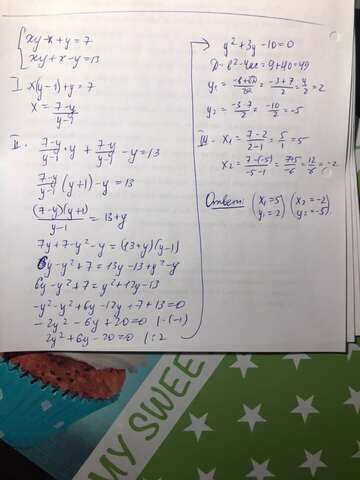 xy-x+y=7
xy+x-y=13
I. x(y-1)+y=7
x = (7-y)/(y-1)
II. (7-y)/(y-1) · y + (7-y)/(y-1) - y = 13
(7-y)/(y-1) (y+1) - y = 13
(7-y)(y+1)/(y-1) = 13+y
7y+7-y²-y = (13+y)(y-1)
6y-y²+7 = 13y-13+y²-y
6y-y²+7 = y²+12y-13
-y²-y²+6y-12y+7+13=0
-2y²-6y+20=0 |·(-1)
2y²+6y-20=0 |:2
y²+3y-10=0
Д=b²-4ac=9+40=49
y₁ = (-b+√D)/2a = (-3+7)/2 = 4/2 = 2
y₂ = (-3-7)/2 = -10/2 = -5
III. x₁ = (7-2)/(2-1) = 5/1 = 5
x₂ = (7-(-5))/(-5-1) = (7+5)/-6 = 12/-6 = -2
Ответ: (x₁=5 y₁=2) (x₂=-2 y₂=-5)
MY SWEE